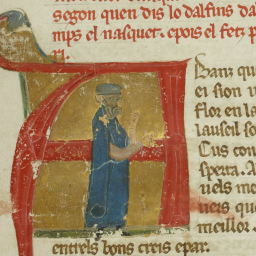 segon quen dis lo dalfins da
mps el nasquet. epois el fetz p
ri.
Hanz qu
ei sion u
flor en la
lauseil so
Cus con
spetra. A
uels me
uers que
meillor.
entrels bons creis epar.